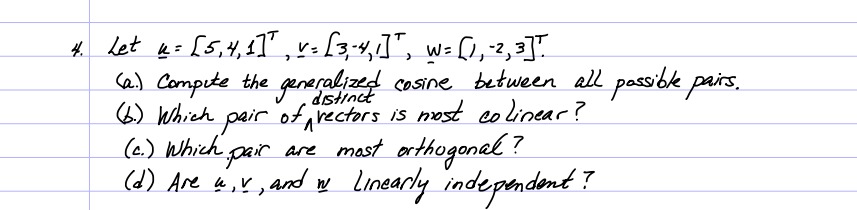 4. Let u = [5,4,1]ᵀ, v = [3,-4,1]ᵀ, w = [1,-2,3]ᵀ.
(a.) Compute the generalized cosine between all possible pairs.
(b.) Which pair of distinct vectors is most colinear?
(c.) Which pair are most orthogonal?
(d) Are u, v, and w linearly independent?